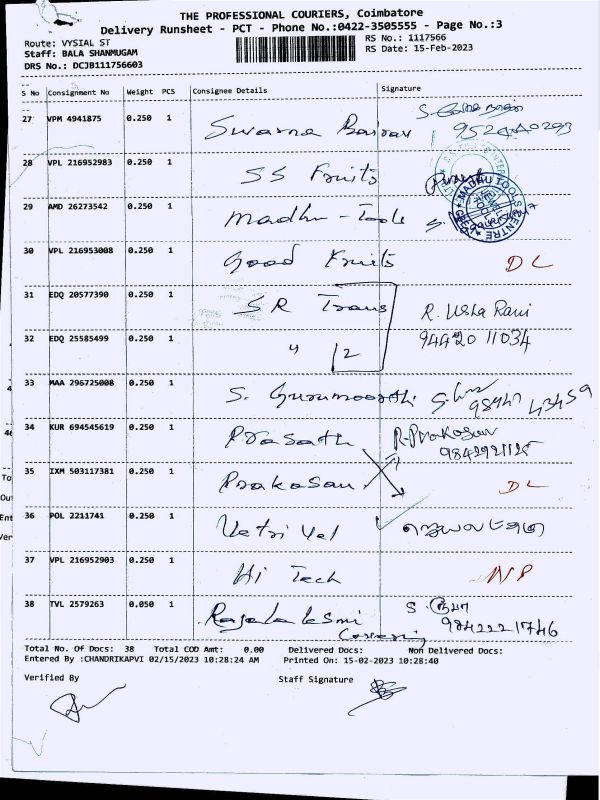 THE PROFESSIONAL COURIERS, Coimbatore
Delivery Runsheet - PCT - Phone No.:0422-3505555 - Page No.:3
Route: VYSIAL ST
Staff: BALA SHANMUGAM
DRS No.: DCJB111756603
RS No.: 1117566
RS Date: 15-Feb-2023
S No Consignment No Weight PCS Consignee Details Signature
27 VPM 4941875 0.250 1 Swarna
28 VPL 216952983 0.250 1 SS Fruits
29 AMD 26273542 0.250 1 Madhu - Tools
30 VPL 216953008 0.250 1 Good Fruits DL
31 EDQ 20577390 0.250 1 SR Trans R. Usha Rani
32 EDQ 25585499 0.250 1 " 2 94420 11034
33 MAA 296725008 0.250 1 S. Gurumoorthi
34 KUR 694545619 0.250 1 Prasath R. Prakasan
35 IXM 503117381 0.250 1 Prakasan DL
36 POL 2211741 0.250 1 Vetri Vel
37 VPL 216952903 0.250 1 Hi Tech NP
38 TVL 2579263 0.050 1 Rajalaksmi
Covering
Total No. Of Docs: 38 Total COD Amt: 0.00 Delivered Docs: Non Delivered Docs:
Entered By :CHANDRIKAPVI 02/15/2023 10:28:24 AM Printed On: 15-02-2023 10:28:40
Verified By Staff Signature